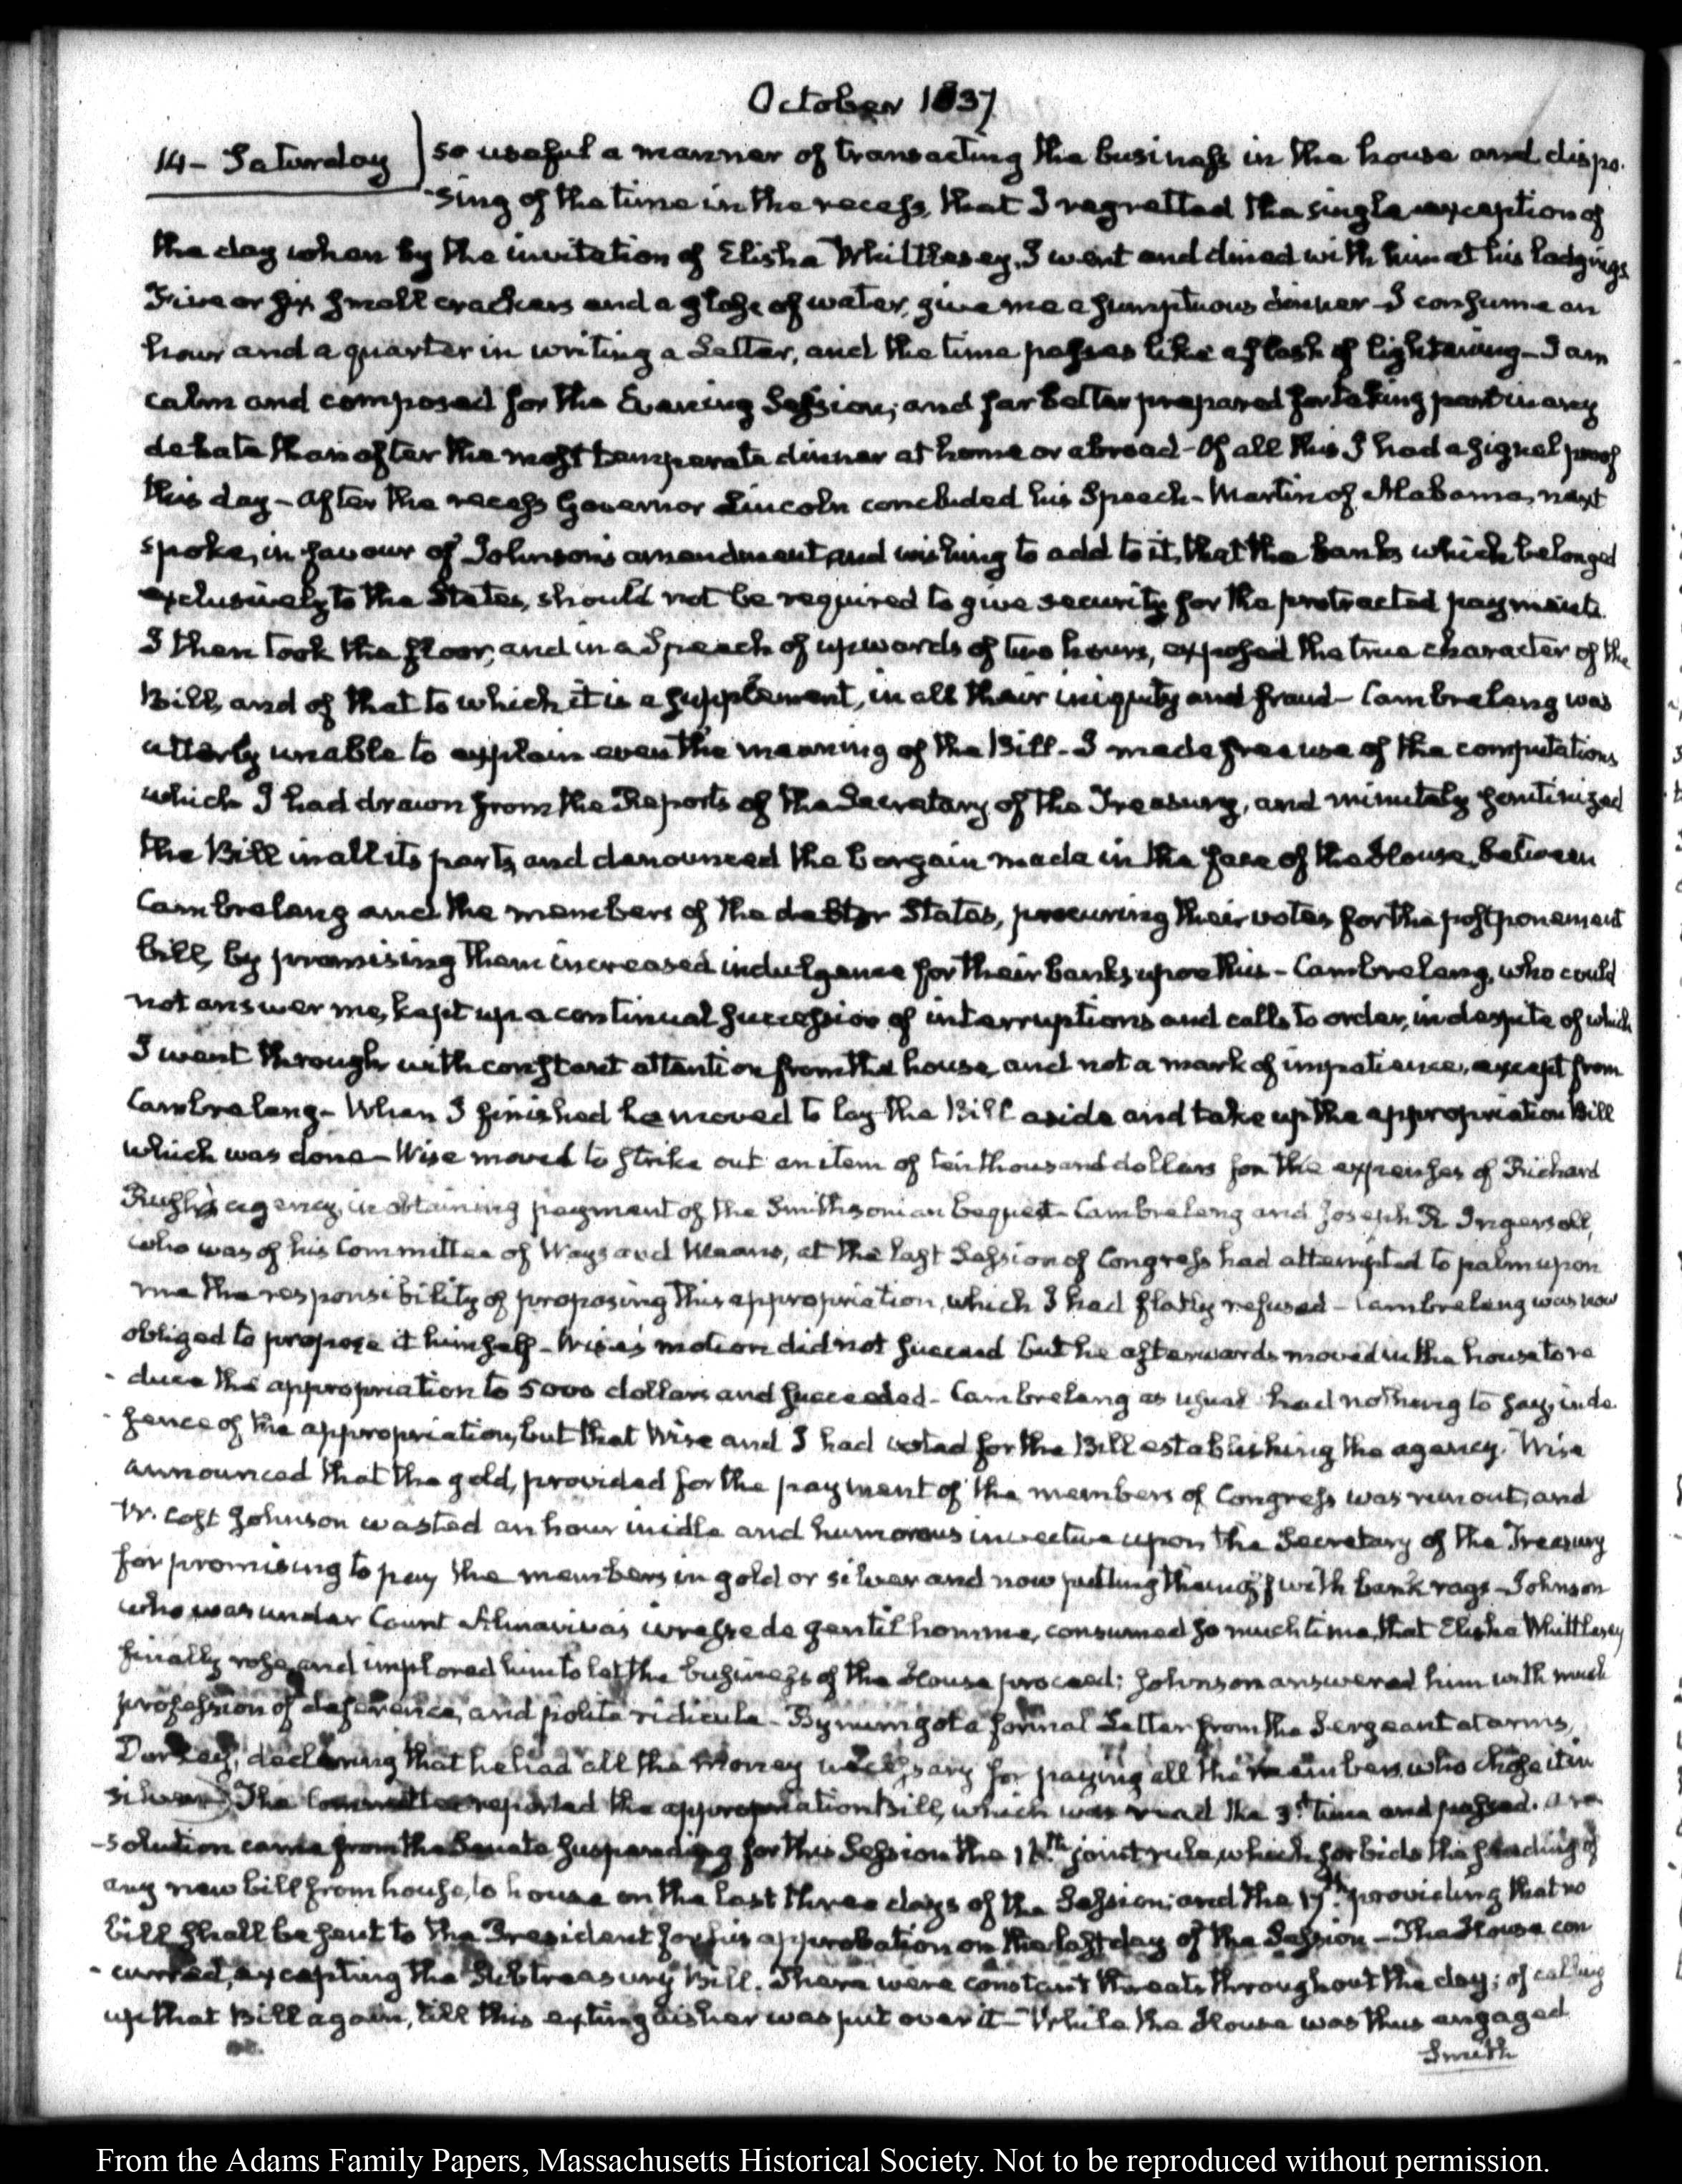 October 1837
14 - Saturday } so useful a manner of transacting the business in the house and dispo-
-sing of the time in the recess, that I regretted the single exception of
the day when by the invitation of Elisha Whittlesey, I went and dined with him at his lodgings
Five or six small crackers and a glass of water, give me a sumptuous dinner - I consume an
hour and a quarter in writing a Letter, and the time passes like a flash of lightening - I am
calm and composed for the Evening Session; and far better prepared for taking part in any
debate than after the most temperate dinner at home or abroad - Of all this I had a signal proof
this day - After the recess Governor Lincoln concluded his Speech - Martin of Alabama, next
spoke, in favour of Johnson's amendment, and wishing to add to it, that the banks which belonged
exclusively to the States, should not be required to give security for the protracted payments.
I then took the floor, and in a Speech of upwards of two hours, exposed the true character of the
Bill, and of that to which it is a supplement, in all their iniquity and fraud - Cambreleng was
utterly unable to explain even the meaning of the Bill - I made free use of the computations
which I had drawn from the Reports of the Secretary of the Treasury, and minutely scrutinized
the Bill in all its parts, and denounced the bargain made in the face of the House, between
Cambreleng and the members of the debtor States, procuring their votes for the postponement
bill, by promising them increased indulgence for their banks upon this - Cambreleng, who could
not answer me, kept up a continual succession of interruptions and calls to order, in despite of which
I went through with constant attention from the house, and not a mark of impatience, except from
Cambreleng - When I finished he moved to lay the Bill aside and take up the appropriation Bill
which was done - Wise moved to strike out an item of ten thousand dollars for the expenses of Richard
Rush's agency, in obtaining payment of the Smithsonian bequest - Cambreleng and Joseph R. Ingersoll,
who was of his Committee of Ways and Means, at the last Session of Congress had attempted to palm upon
me the responsibility of proposing this appropriation, which I had flatly refused - Cambreleng was now
obliged to propose it himself - Wise's motion did not succeed but he afterwards moved in the house to re
-duce the appropriation to 5000 dollars and succeeded - Cambreleng as usual had nothing to say, in de
-fence of the appropriation, but that Wise and I had voted for the Bill establishing the agency. Wise
announced that the gold, provided for the payment of the members of Congress was run out; and
W. Cost Johnson wasted an hour in idle and humorous invective upon the Secretary of the Treasury
for promising to pay the members in gold or silver and now putting them off with bank rags - Johnson
who was under Count Almaviva's ivresse de gentilhomme, consumed so much time, that Elisha Whittlesey
finally rose, and implored him to let the business of the House proceed: Johnson answered him with much
profession of deference, and polite ridicule - Bynum got a formal Letter from the Sergeant at arms,
Dorsey, declaring that he had all the money necessary for paying all the members, who chose it in
silver. The Committee reported the appropriation Bill, which was read the 3.d time and passed. A re
-solution came from the Senate suspending for this Session the 16.th joint rule, which forbids the sending of
any new bill from house, to house on the last three days of the Session; and the 17.th providing that no
bill shall be sent to the President for his approbation on the last day of the Session - The House con
-curred, excepting the Subtreasury Bill. There were constant threats throughout the day; of calling
up that Bill again, till this extinguisher was put over it - While the House was thus engaged
Smith
From the Adams Family Papers, Massachusetts Historical Society. Not to be reproduced without permission.